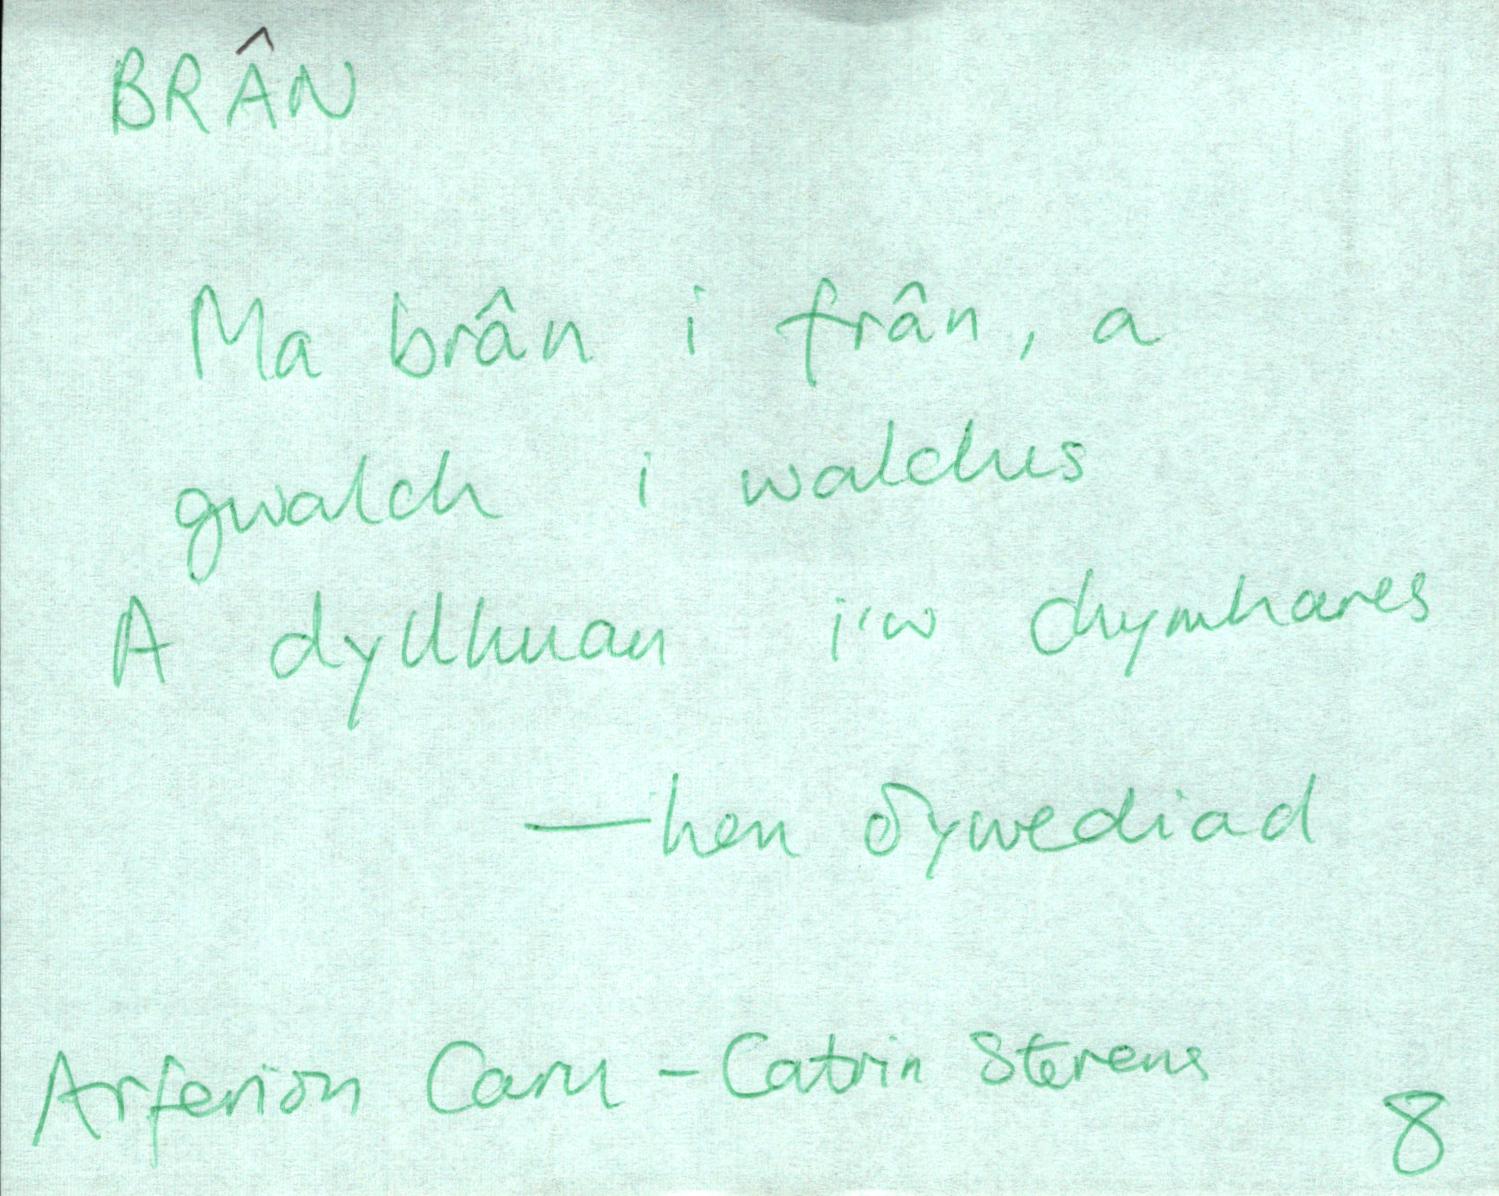 BRÂN
Ma brân i frân, a
gwalch i walches
A dyllhuan i'w chymhares
— hen δywediad
Arferion Caru - Catrin Stevens
8